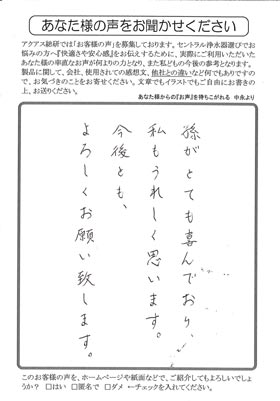 あなた様の声をお聞かせください
アクアス総研では「お客様の声」を募集しております。セントラル浄水器選びでお
悩みの方へ『快適さや安心感』をお伝えするために、実際にご利用いただいた
あなた様の率直なお声が何よりの力となり、また私どもの今後の参考となります。
製品に関して、会社、使用されての感想文、他社との違いなど何でもありですので
で、お気づきのことをお寄せください。文章でもイラストでもご自由にお書きの
上、お送りください。
あなた様からの『お声』を待ちこがれる 中永より
孫がとても喜んでおり、
私もうれしく思います。
今後とも、
よろしくお願い致します。
このお客様の声を、ホームページや紙面などで、ご紹介してもよろしいでしょ
うか? □はい □匿名で □ダメ ←チェックを入れてください。